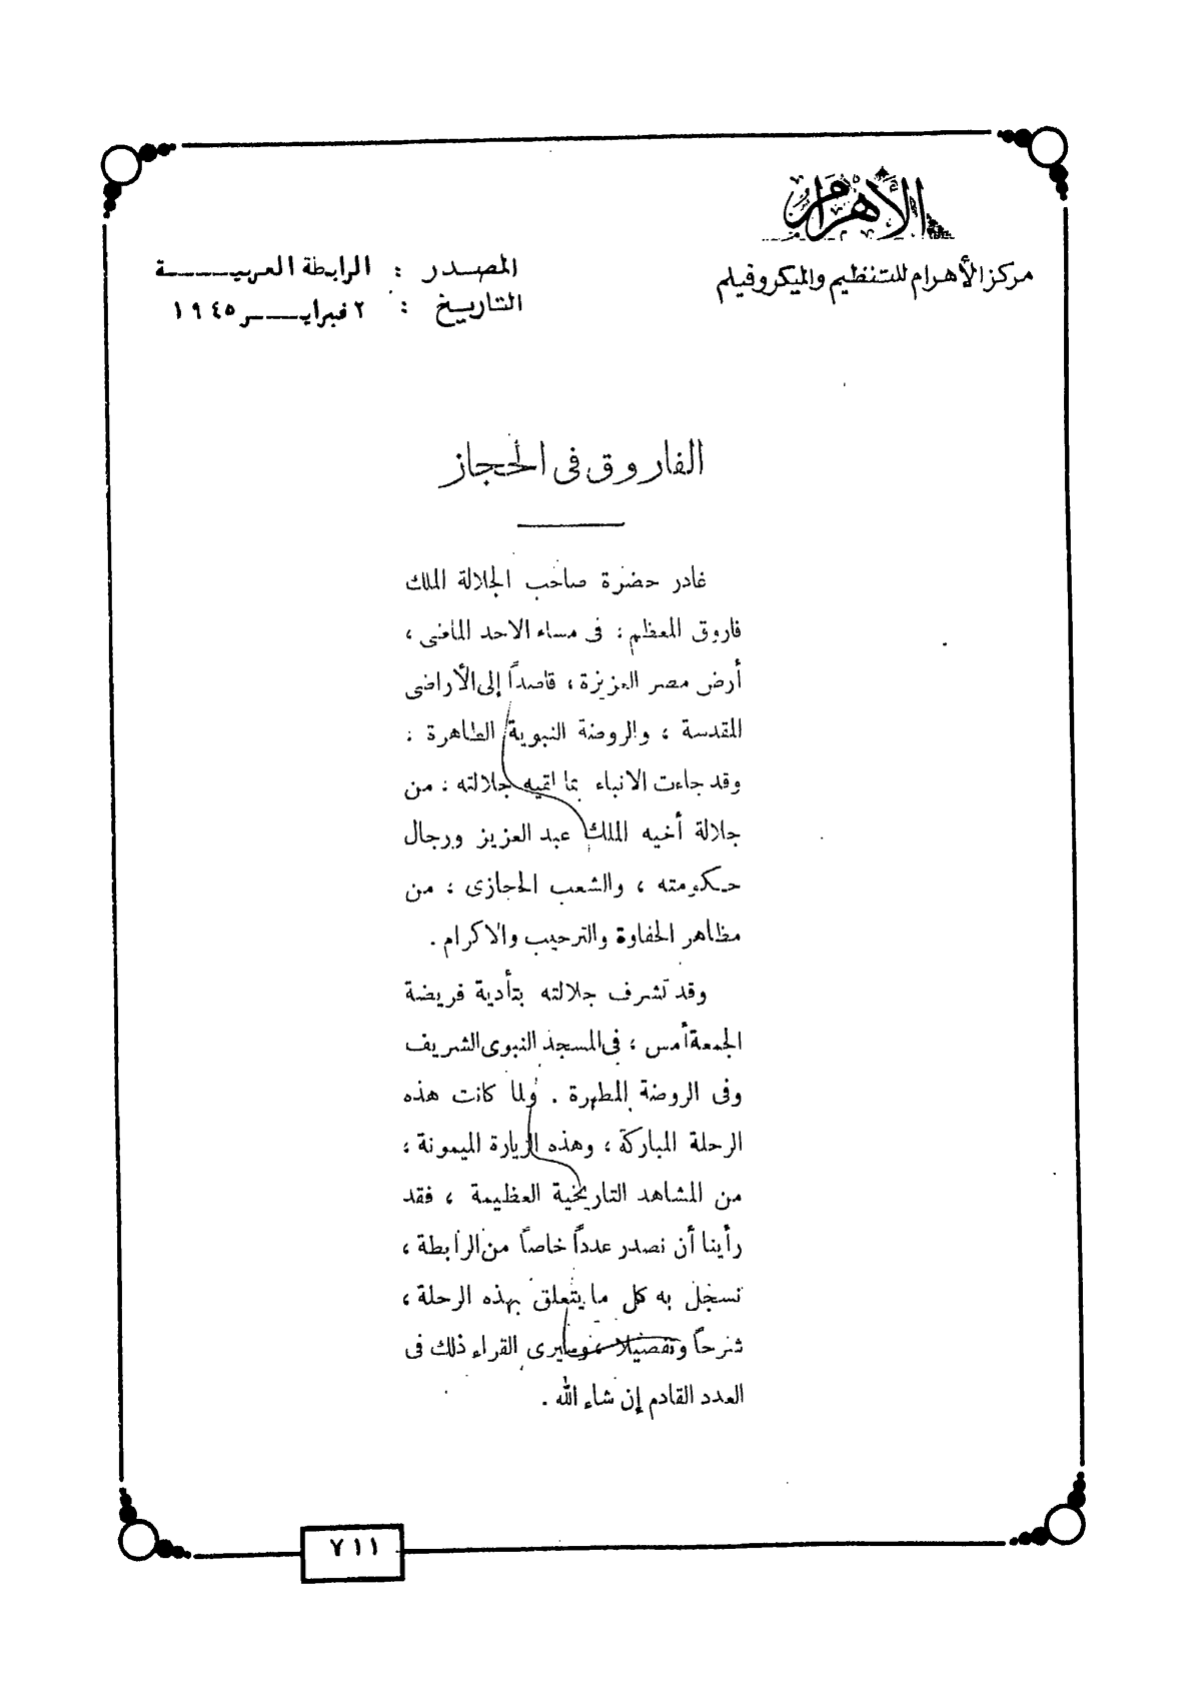 الأهرام
مركز الأهرام للتنظيم والميكروفيلم
المصدر : الرابطة العربية
التاريخ : ٢ فبراير ١٩٤٥
الفاروق فى الحجاز
غادر حضرة صاحب الجلالة الملك
فاروق المعظم ؛ فى مساء الاحد الماضى ،
أرض مصر العزيزة ، قاصداً إلى الأراضى
المقدسة ، والروضة النبوية الطاهرة ؛
وقد جاءت الانباء بما لقيه جلالته ؛ من
جلالة أخيه الملك عبد العزيز ورجال
حكومته ، والشعب الحجازى ؛ من
مظاهر الحفاوة والترحيب والاكرام .
وقد تشرف جلالته بتأدية فريضة
الجمعة أمس ؛ فى المسجد النبوى الشريف
وفى الروضة المطهرة . ولما كانت هذه
الرحلة المباركة ، وهذه الزيارة الميمونة ؛
من المشاهد التاريخية العظيمة ، فقد
رأينا أن نصدر عدداً خاصاً من الرابطة ،
نسجل به كل ما يتعلق بهذه الرحلة ،
شرحاً وتفصيلا ، وسيرى القراء ذلك فى
العدد القادم إن شاء الله .
٧١١